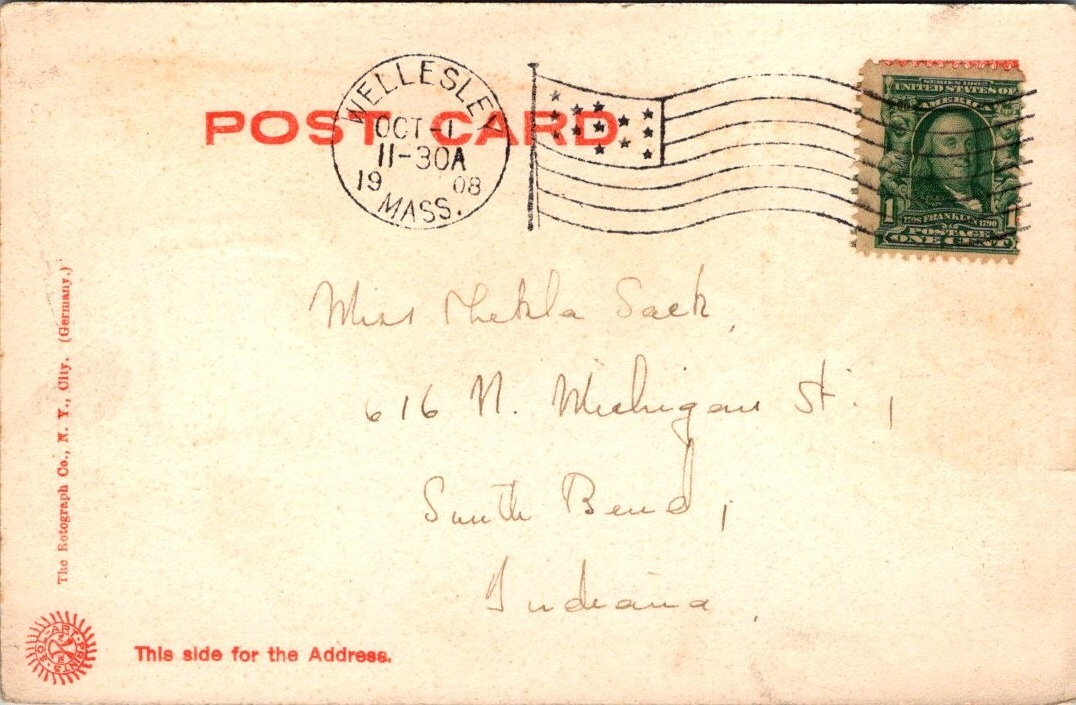 WELLESLEY
OCT-1
11-30A
19 08
MASS.
POST CARD
SERIES 1902
UNITED STATES OF
AMERICA
1706 FRANKLIN 1790
1 1
POSTAGE
ONE CENT
Miss Thekla Sack,
616 N. Michigan St.,
South Bend,
Indiana,
The Rotograph Co., N. Y., City. (Germany.)
SOL-ART-PRINTS
This side for the Address.